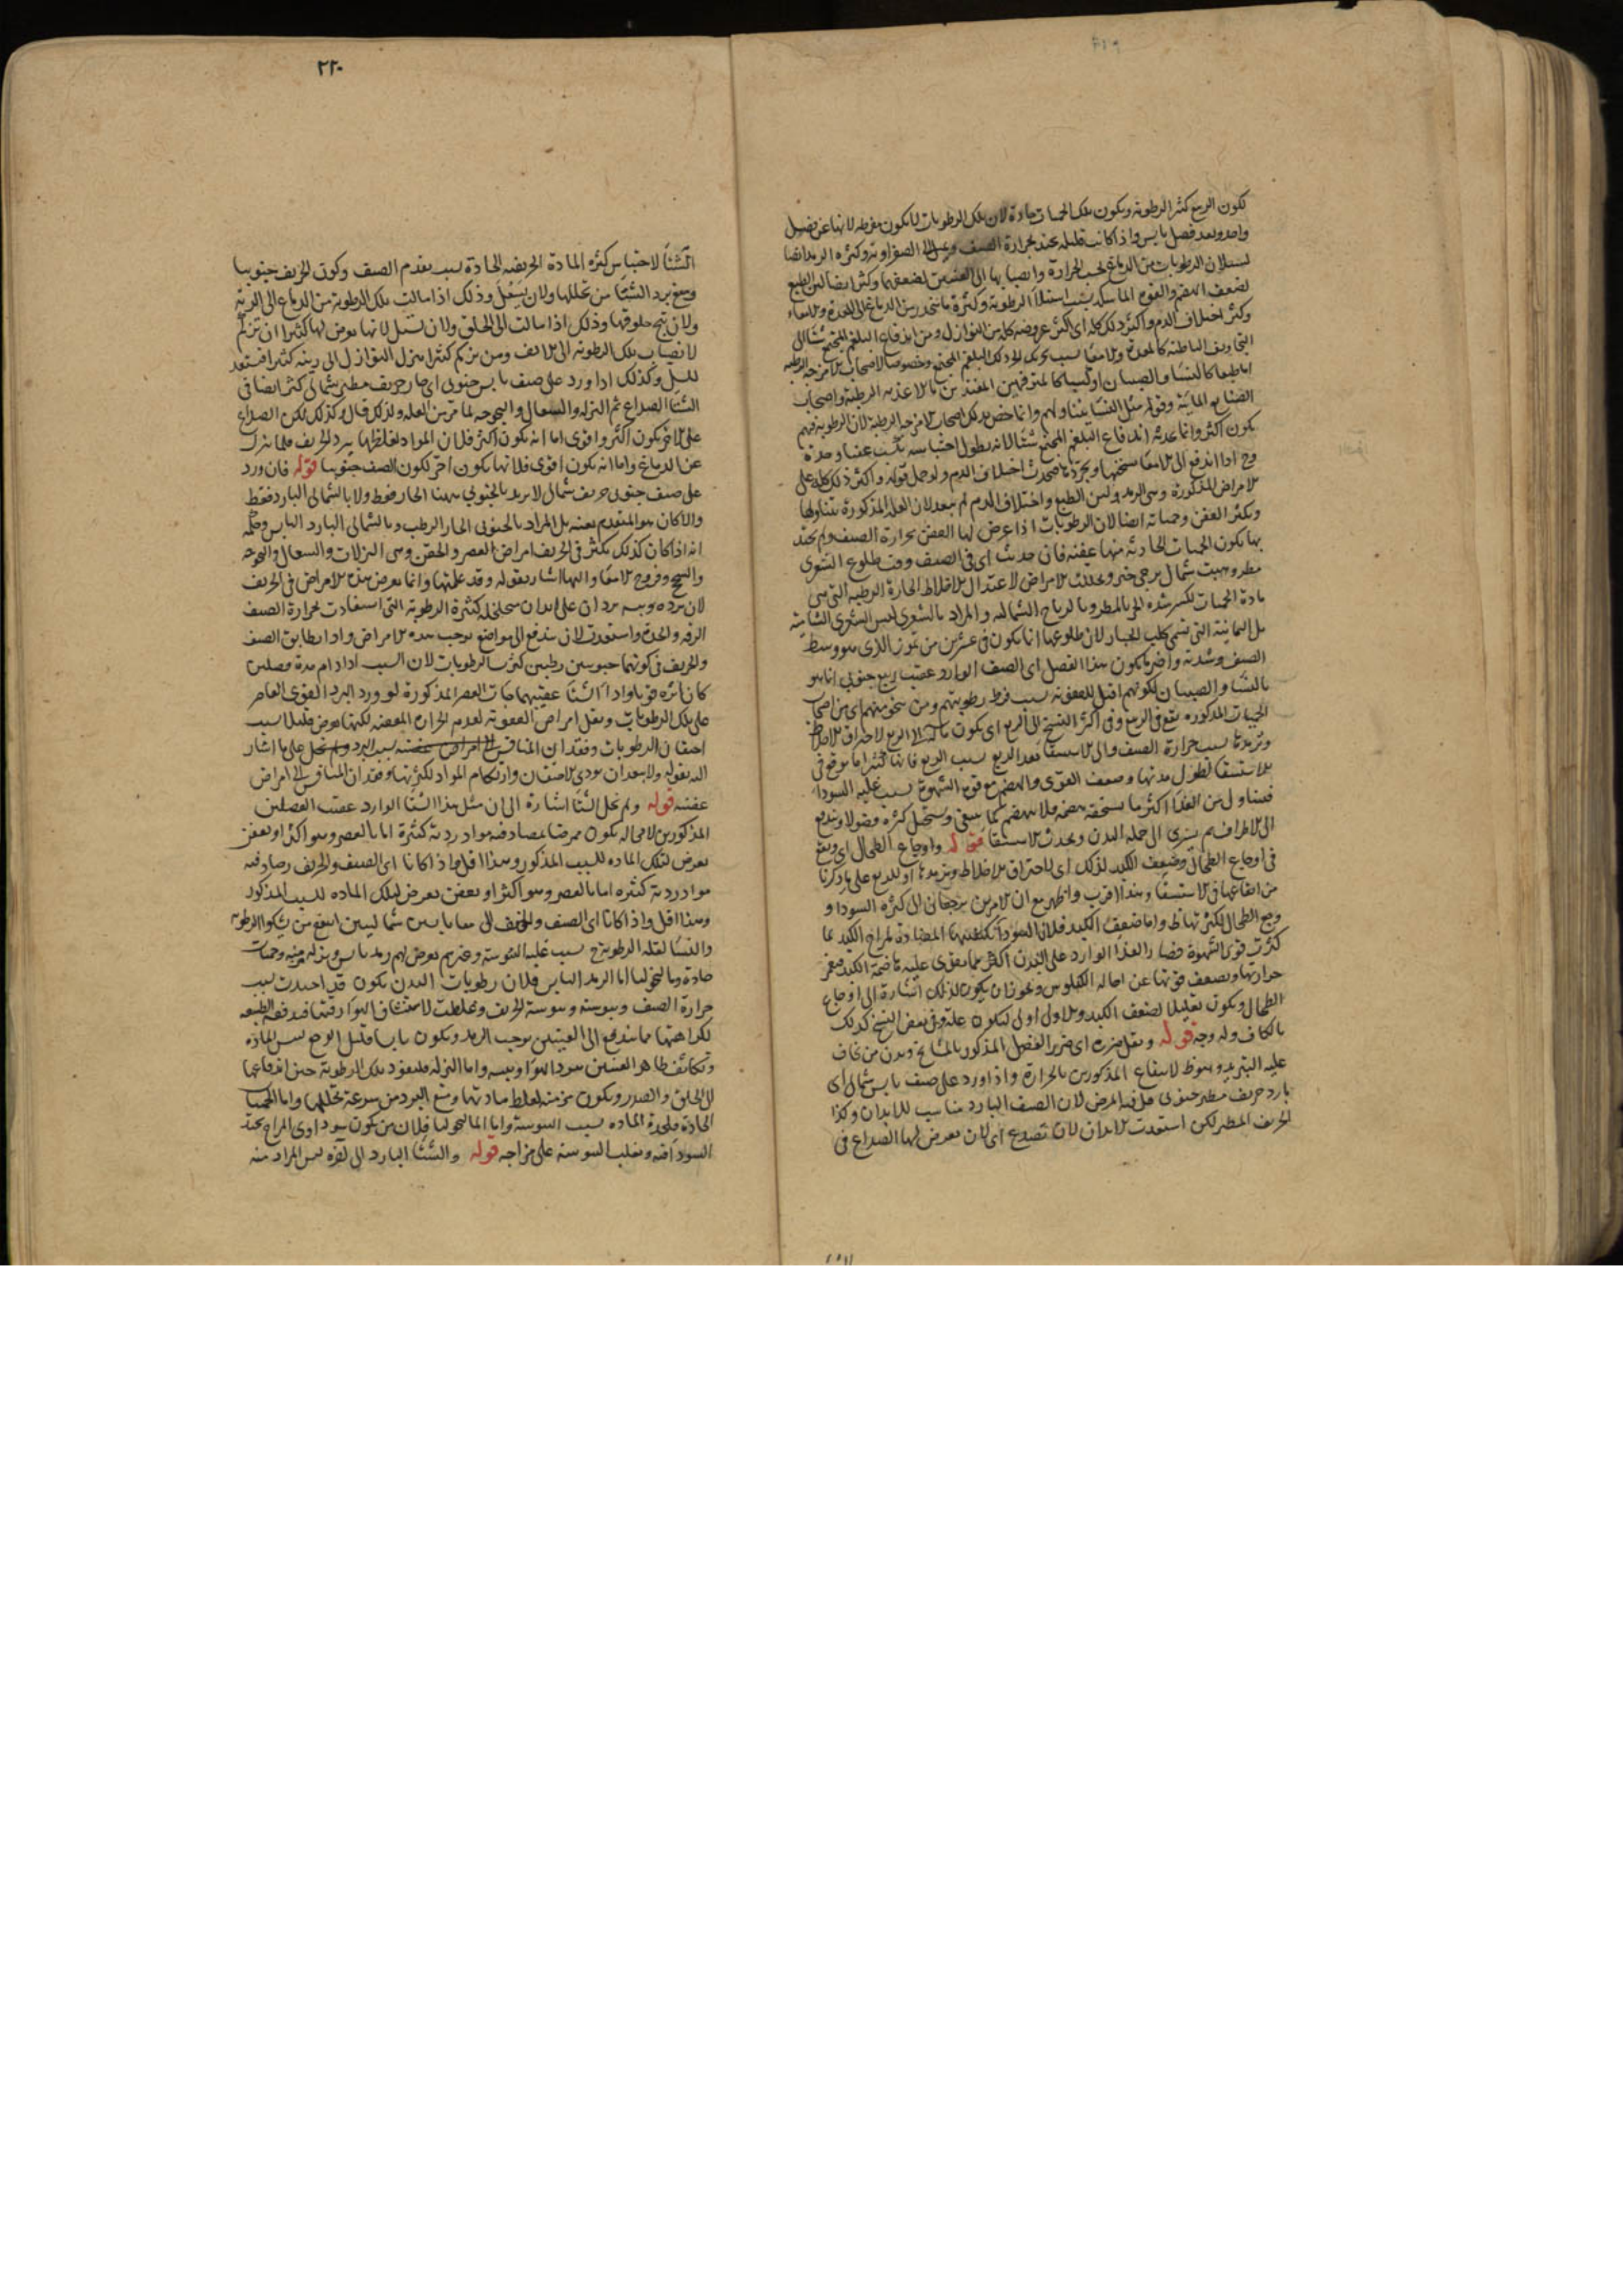 لكون الربيع كثير الرطوبة ويكون تلك الحميات حادة لان تلك الرطوبات لا يكون مفرطه لانها عن فصل
واحد وبعد فصل يابس واذا كانت قليله تحتد بحرارة الصيف وتميل الى الصفراوية وكثرة الرمد ايضا
لسيلان الرطوبات من الدماغ بحسب الحرارة وانصبابها الى العينين لضعفهما وكثر ايضا لين الطبع
لضعف الهضم والقوة الماسكة بسبب استيلاء الرطوبة وكثرة ما ينحدر من الدماغ الى المعدة والامعاء
وكثر اختلاف الدم واكثر ذلك كله اى اكثر عروضه كله من النوازل ومن اندفاع البلغم المجتمع شتاء الى
التجاويف الباطنة كالمعدة والامعاء بسبب تحريك الحر ذلك البلغم المجتمع وخصوصا لاصحاب الامزجه الرطبه
اما طبعا كالنساء والصبيان او كسبا كالمترفهين المغتذين بالاغذيه الرطبة واصحاب
الصنايع المائية وقوله مثل النساء يتناولهم وانما خص بذلك اصحاب الامزجه الرطبة لان الرطوبة فيهم
يكون اكثر وانما اندفاع البلغم المجتمع شتاء لانه بطول احتباسه يكتسب عفنا وحدة
وح اذا اندفع الى الامعاء سحجها وجردها فحدث اختلاف الدم ولو حمل قوله واكثر ذلك كله على
الامراض المذكورة وهى الرمد ولين الطبع واختلاف الدم لم يبعد لان العله المذكورة يتناولها
ويكثر العفن وحمياته ايضا لان الرطوبات اذا عرض لها العفن بحرارة الصيف ولم تحتد
بها يكون الحميات الحادثه منها عفنه فان حدث اى فى الصيف وقت طلوع الشعرى
مطر وهبت شمال يرجى خير وتحللت الامراض لاعتدال الاخلاط الحارة الرطبه التى هى
مادة الحميات لكسر شدة الحر بالمطر وبالرياح الشماليه والمراد بالشعرى ليس الشعرى الشامية
بل اليمانية التى تسمى كلب الجبار لان طلوعها انما يكون فى عشرين من تموز الذى هو وسط
الصيف وشدته واضر ما يكون هذا الفصل اى الصيف الوارد عقيب ربيع جنوبى انما هو
بالنساء والصبيان لكونهم اقبل للعفونه بسبب فرط رطوبتهم ومن ينجو منهم اى من اصحاب
الحميات المذكوره يقع فى الربع وفى اكثر النسخ الى الربع اى يكون لاحتراق الاخلاط
وترمدها بسبب حرارة الصيف والى الاستسقاء بعد الربع بسبب الربع فانها كثيرا ما توقع فى
الاستسقاء لطول مدتها وضعف القوى والهضم مع قوة الشهوة بسبب غلبه السوداء
فيتناول من الغذاء اكثر ما يستحقه هضمه فلا ينهضم كما ينبغى ويستحيل كثره فضولا ويندفع
الى الاطراف ثم يسرى الى جمله البدن ويحدث الاستسقاء قوله واوجاع الطحال اى ويقع
فى اوجاع الطحال وضعف الكبد لذلك اى لاحتراق الاخلاط وترمدها او للربع على ما ذكرنا
من ايقاعها فى الاستسقاء وهذا اقرب واظهر مع ان الامرين يرجعان الى كثرة السوداء و
وجع الطحال لكثرتها ظ واما ضعف الكبد فلان السوداء بكيفيتها المضادة لمزاج الكبد لما
كثرت قوى الشهوة فصار الغذاء الوارد على البدن اكثر مما يقوى عليه هاضمة الكبد فيعجز
حرارتها ويضعف قوتها عن احاله الكيلوس ويجوز ان يكون لذلك اشارة الى اوجاع
الطحال ويكون تعليلا لضعف الكبد والاول اولى ليكون علة وفى بعض النسخ كذلك
بالكاف وله وجه قوله ويقل ضرره اى ضرر الفصل المذكور بالمشايخ وبدن من يخاف
عليه التبريد وهو ظ لانتفاع المذكورين بالحرارة واذا ورد على صيف يابس شمالى اى
بارد خريف مطير جنوبى قل فيه المرض لان الصيف البارد مناسب للابدان وكذا
الخريف المطير لكن استعدت الابدان لان تصدع اى لان يعرض لها الصداع فى
٢٢٠
الشتاء لاحتباس كثرة المادة الخريفيه الحادة بسبب تقدم الصيف وكون الخريف جنوبيا
ومنع برد الشتاء من تحللها ولان تسعل وذلك اذا سالت تلك الرطوبة من الدماغ الى الرية
ولان تبح حلوقها وذلك اذا سالت الى الحلق ولان تسل لانها يعرض لها كثيرا ان تزكم
لانصباب تلك الرطوبة الى الانف ومن يزكم كثيرا ينزل النوازل الى ريته كثيرا فتستعد
للسل وكذلك اذا ورد على صيف يابس جنوبى اى حار خريف مطير شمالى كثر ايضا فى
الشتاء الصداع ثم النزله والسعال والبحوحه لما مر من العله ولذلك قال وكذلك لكن الصداع
على الاخر يكون اكثر واقوى اما انه يكون اكثر فلان المواد لغلظها ببرد الخريف قلما ينزل
عن الدماغ واما انه يكون اقوى فلانها يكون احر لكون الصيف جنوبيا قوله فان ورد
على صيف جنوبى خريف شمال لا يريد بالجنوبى ههنا الحار فقط ولا بالشمالى البارد فقط
والا كان هو المتقدم بعينه بل المراد بالجنوبى الحار الرطب وبالشمالى البارد اليابس وحكمه
انه اذا كان كذلك يكثر فى الخريف امراض العصر والحقن وهى النزلات والسعال والبحوحه
والسحج وقروح الامعاء واليها اشار بقوله وقد علمتها وانما يعرض هذه الامراض فى الخريف
لان برده ويبسه يردان على ابدان متخلخله كثيرة الرطوبة التى استفادت بحرارة الصيف
الرقه والحدة واستعدت لان تندفع الى مواضع يوجب هذه الامراض واذا تطابق الصيف
والخريف فى كونهما جنوبيين رطبين كثرت الرطوبات لان السبب اذا دام مدة فصلين
كان اثره قويا واذا جاء الشتاء عقيبهما جاءت العصر المذكورة لورود البرد القوى العاصر
على تلك الرطوبات ويقل امراض العفونة لعدم الحرارة المعفنه لكنها يعرض قليلا بسبب
احتقان الرطوبات وفقدان المنافس على ما اشار
اليه بقوله ولا يبعد ان يودى الاحتقان وارتكام المواد لكثرتها وفقدان المنافس الى امراض
عفنه قوله ولم يخل الشتاء اشارة الى ان مثل هذا الشتاء الوارد عقيب الفصلين
المذكورين لا محاله يكون ممرضا لمصادفته مواد ردية كثيرة اما بالعصر وهو اكثر او بعفن
يعرض لتلك المادة للسبب المذكور وهذا اقل واذا كانا اى الصيف والخريف
مواد ردية كثيره اما بالعصر وهو اكثر او بعفن يعرض لتلك المادة للسبب المذكور
وهذا اقل واذا كانا اى الصيف والخريف معا يابسين شماليين انتفع من يشكوا الرطوبة
والنساء لقلة الرطوبة ح بسبب غلبه اليبوسة وغيرهم يعرض لهم رمد يابس ونزله مزمنه وحميات
حادة وماليخوليا اما الرمد اليابس فلان رطوبات البدن يكون قد احتدت بسبب
حرارة الصيف ويبوسته ويبوسة الخريف وغلظت لاستنشاق الهواء فيدفعه الطبيعه
لكراهتها فما يندفع الى العينين يوجب الرمد ويكون يابسا قليل الرمص ليبس المادة
وتكاثف ظاهر العينين ببرد الهواء ويبسه واما النزله فلنفوذ تلك الرطوبة حين اندفاعها
الى الحلق والصدر ويكون مزمنه لغلظ مادتها ومنع البرد من سرعة تحللها واما الحميات
الحادة فلحدة المادة بسبب اليبوسة واما الماليخوليا فلان من يكون سوداوى المزاج تحتد
السوداء فيه ويغلب اليبوسة على مزاجه قوله والشتاء البارد الى اخره ليس المراد منه